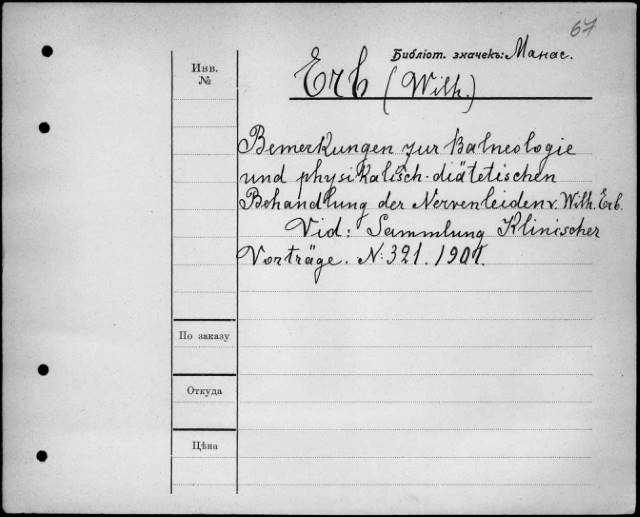 67
Библіот. значекъ: Манас.
Инв. №
Erb (Wilh.)
Bemerkungen zur Balneologie
und physikalisch-diätetischen
Behandlung der Nervenleiden v. Wilh. Erb.
Vid: Sammlung Klinischer
Vorträge. N: 321. 1901.
По заказу
Откуда
Цѣна